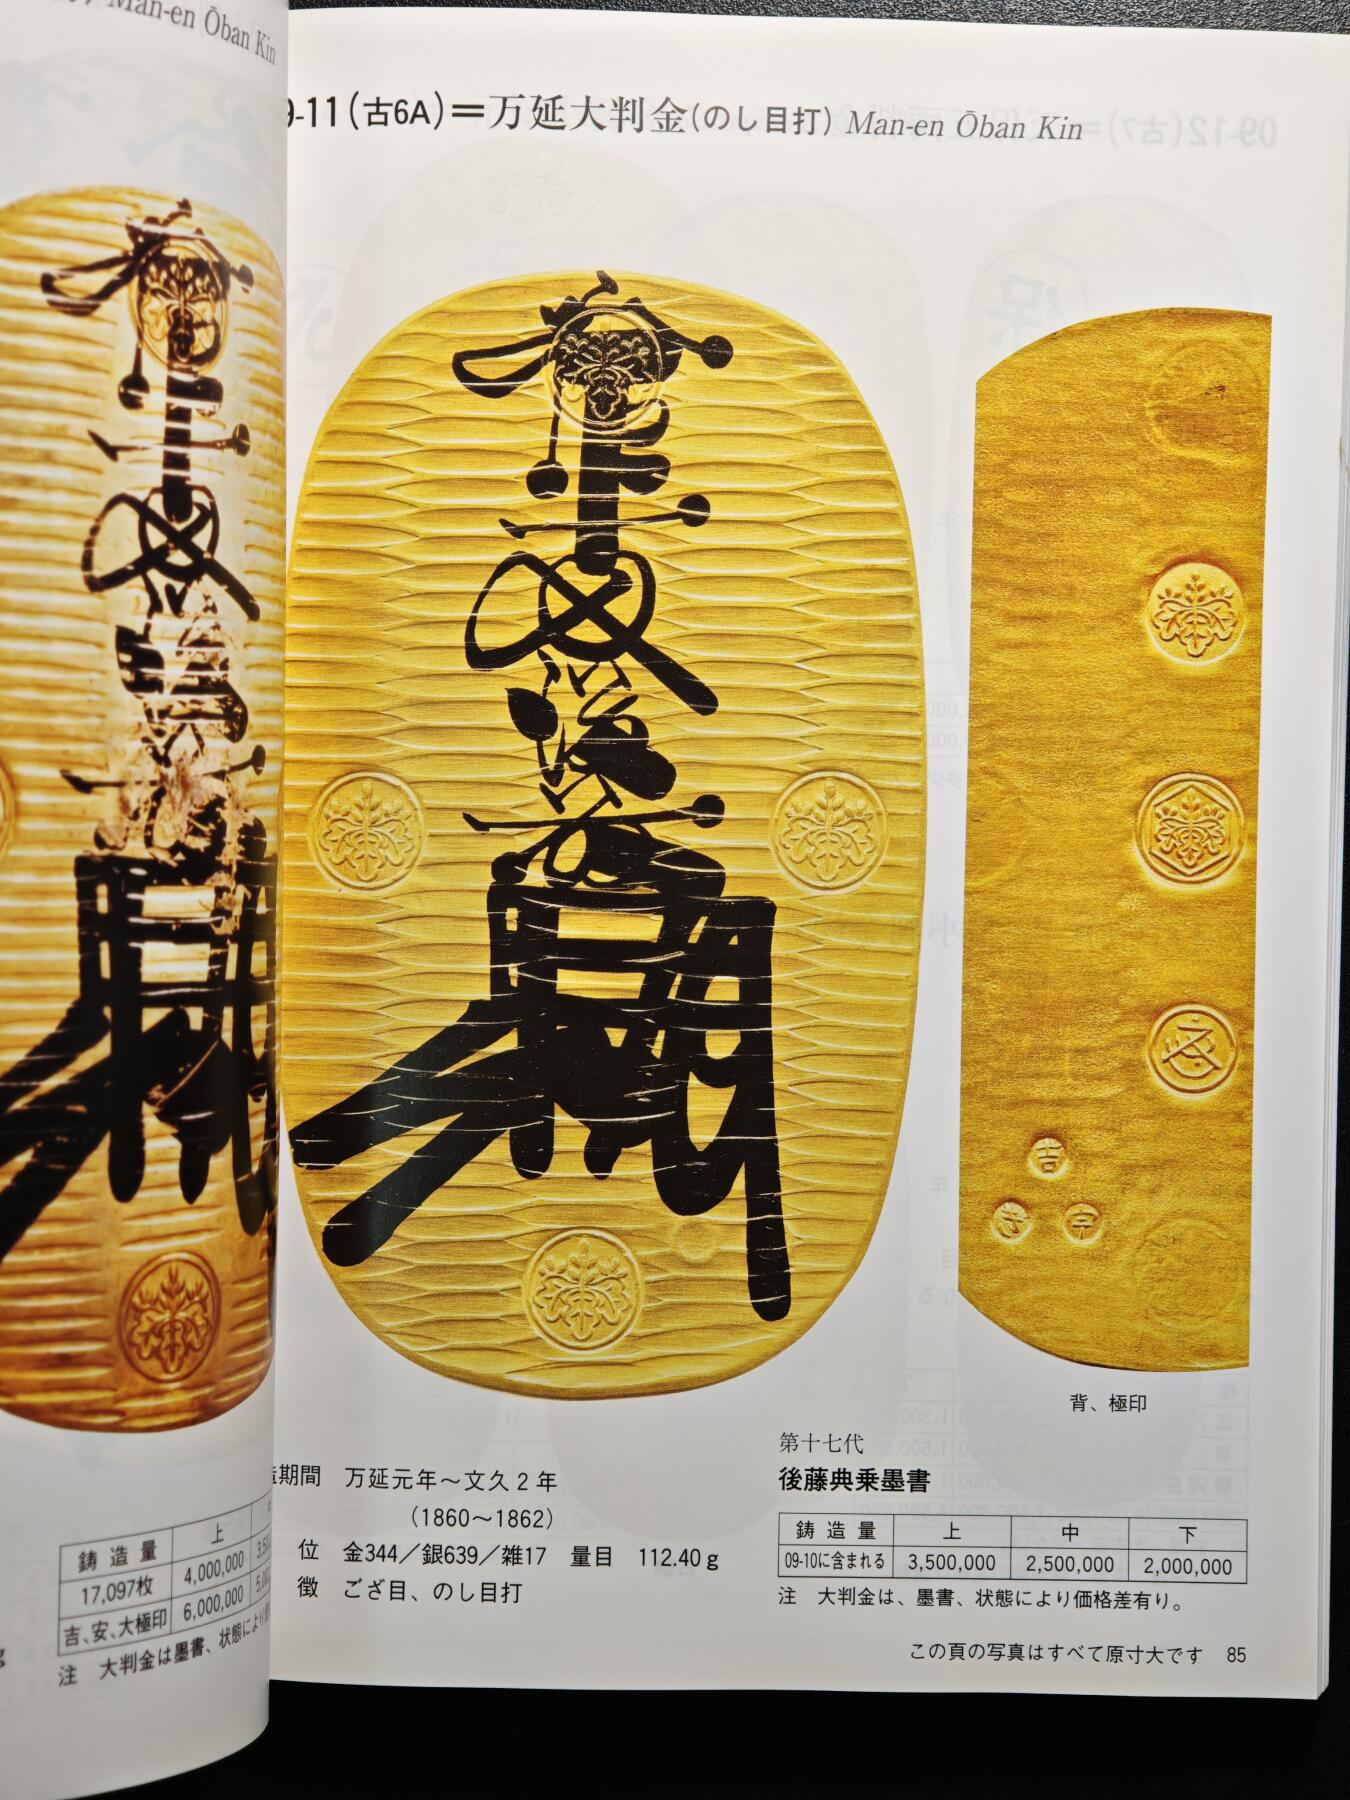 Man-en Ōban Kin
鋳造量 上
17,097枚 4,000,000
吉、安、大極印 6,000,000
注 大判金は墨書、状態により
9-11(古6A)=万延大判金(のし目打) Man-en Ōban Kin
吉
宇
背、極印
期間 万延元年~文久2年
(1860~1862)
位 金344/銀639/雑17 量目 112.40g
徴 ござ目、のし目打
第十七代
後藤典乗墨書
鋳造量 上 中 下
09-10に含まれる 3,500,000 2,500,000 2,000,000
注 大判金は、墨書、状態により価格差有り。
この頁の写真はすべて原寸大です 85